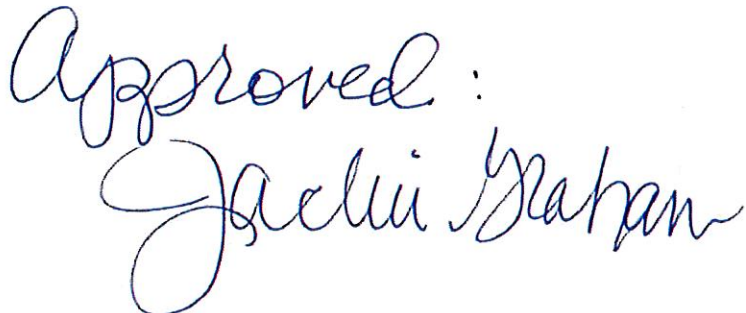 Approved:
Jackie Graham